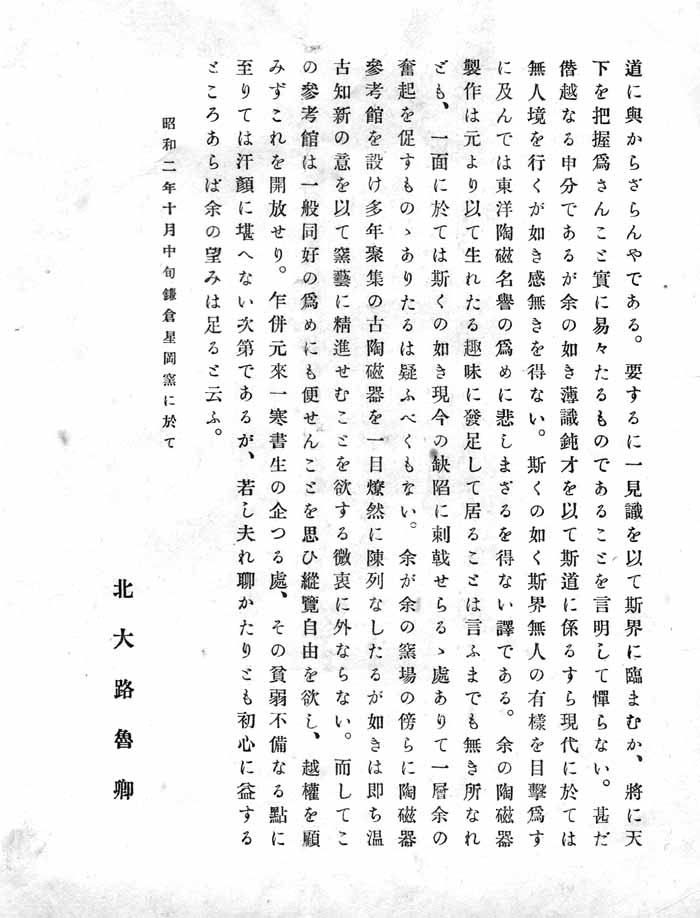 道に與からざらんやである。要するに一見識を以て斯界に臨まむか、將に天
下を把握爲さんこと實に易々たるものであることを言明して憚らない。甚だ
僭越なる申分であるが余の如き薄識鈍才を以て斯道に係るすら現代に於ては
無人境を行くが如き感無きを得ない。斯くの如く斯界無人の有樣を目擊爲す
に及んでは東洋陶磁名譽の爲めに悲しまざるを得ない譯である。余の陶磁器
製作は元より以て生れたる趣味に發足して居ることは言ふまでも無き所なれ
ども、一面に於ては斯くの如き現今の缺陷に刺戟せらるゝ處ありて一層余の
奮起を促すものゝありたるは疑ふべくもない。余が余の窯場の傍らに陶磁器
參考館を設け多年聚集の古陶磁器を一目燎然に陳列なしたるが如きは卽ち温
古知新の意を以て窯藝に精進せむことを欲する微衷に外ならない。而してこ
の參考館は一般同好の爲めにも便せんことを思ひ縱覽自由を欲し、越權を顧
みずこれを開放せり。乍併元來一寒書生の企つる處、その貧弱不備なる點に
至りては汗顏に堪へない次第であるが、若し夫れ聊かたりとも初心に益する
ところあらば余の望みは足ると云ふ。
昭和二年十月中旬鎌倉星岡窯に於て
北大路魯卿